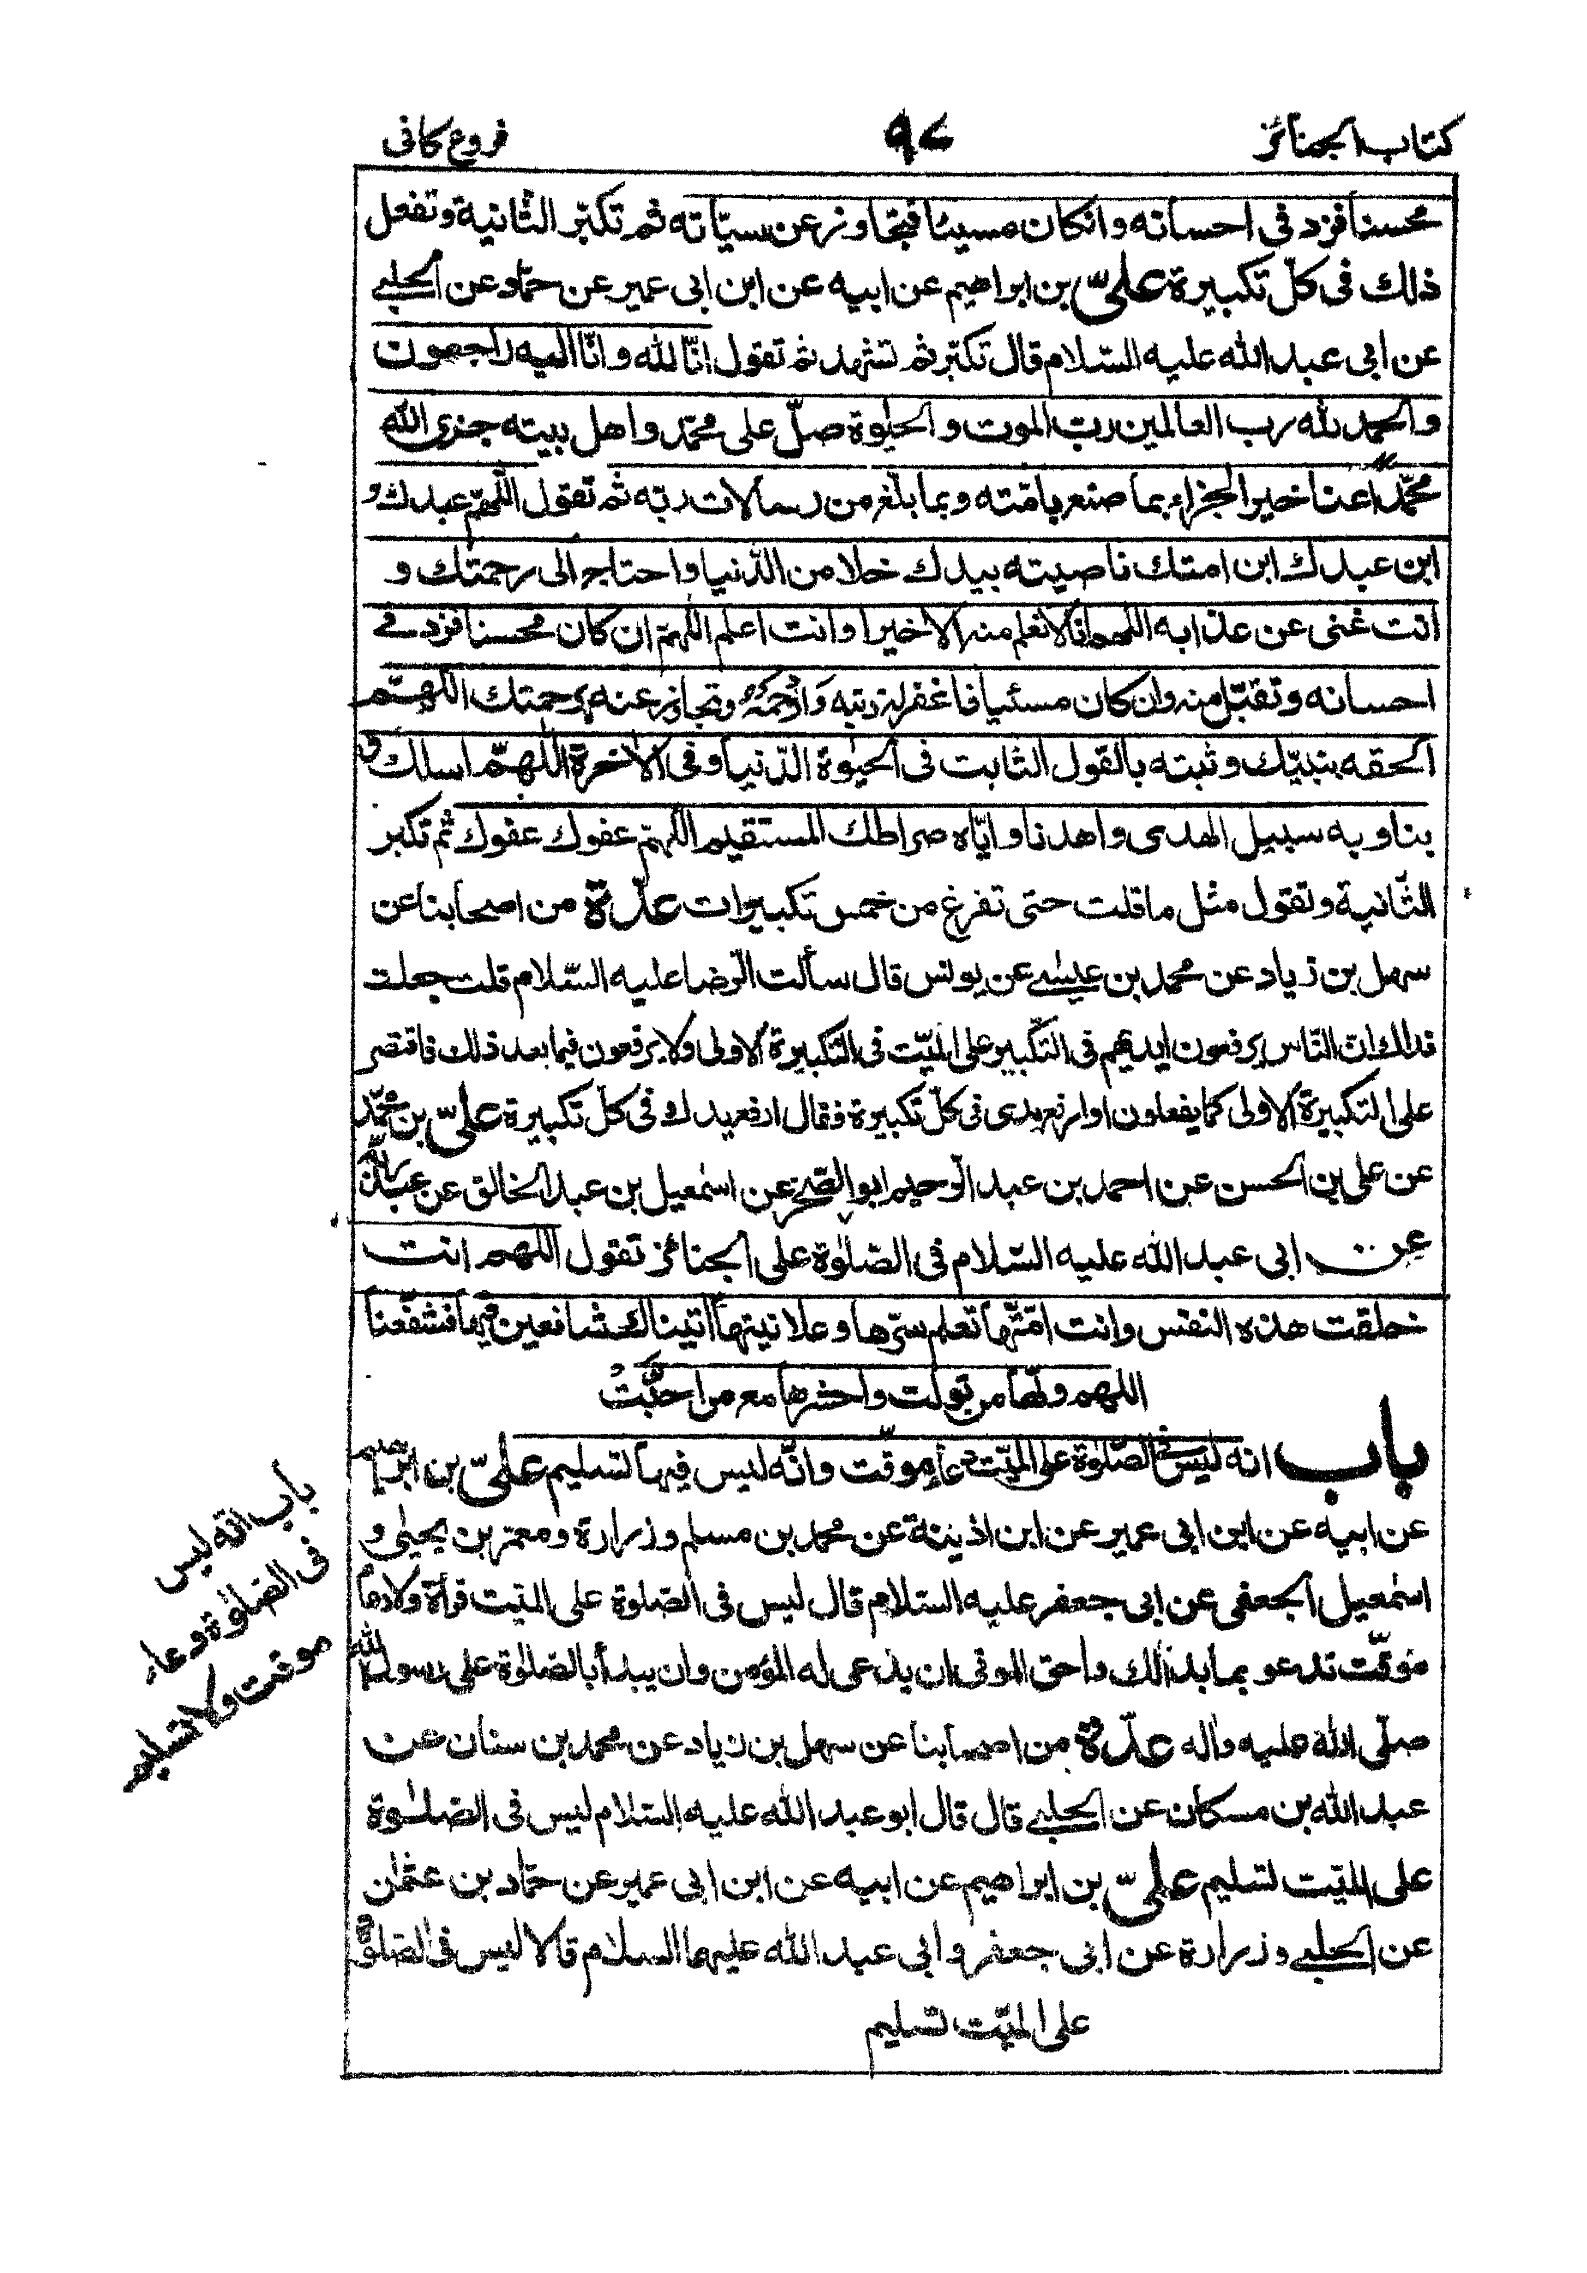 كتاب الجنائز
٩٧
فروع كافى
محسنا فزد فى احسانه وانكان مسيئا فتجاوز عن سيّاته ثم تكبّر الثانية وتفعل
ذلك فى كلّ تكبيرة علىّ بن ابراهيم عن ابيه عن ابن ابى عمير عن حمّاد عن الحلبى
عن ابى عبد الله عليه السّلام قال تكبّر ثم تشهد ثم تقول انّا لله وانّا اليه راجعون
والحمد لله رب العالمين رب الموت والحيٰوة صلّ على محمّد واهل بيته جزى الله
محمّدًا عنا خير الجزاء بما صنع بامّته وبما بلّغ من رسالات ربّه ثم تقول اللّهم عبدك و
ابن عبدك ابن امتك ناصيته بيدك خلا من الدّنيا واحتاج الى رحمتك و
انت غنى عن عذابه اللهم انّا لا نعلم منه الا خيرا وانت اعلم اللّهمّ ان كان محسنا فزد فى
احسانه وتقبّل منه وان كان مسئيا فاغفر له ذنبه وَارْحَمْهُ وتجاوز عنه برحمتك اللّهمّ
الحقه بنبيّك وثبته بالقول الثابت فى الحيٰوة الدّنيا وفى الاٰخرة اللّهمّ اسلك
بنا وبه سبيل الهدى واهدنا وايّاه صراطك المستقيم اللّهمّ عفوك عفوك ثم تكبر
الثّانية وتقول مثل ما قلت حتى تفرغ من خمس تكبيرات عدّة من اصحابنا عن
سهل بن زياد عن محمد بن عيسٰى عن يونس قال سألت الرّضا عليه السّلام قلت جعلت
فداك انّ النّاس يرفعون ايديهم فى التّكبير على الميّت فى التّكبيرة الاولى ولا يرفعون فيما بعد ذلك فاقتصر
على التكبيرة الاولى كما يفعلون او ارفع يدى فى كلّ تكبيرة فقال ارفع يدك فى كلّ تكبيرة علىّ بن محمّد
عن على بن الحسن عن احمد بن عبد الرّحيم ابو الصّخر عن اسمٰعيل بن عبد الخالق عن عبد ربّه
عن ابى عبد الله عليه السّلام فى الصّلٰوة على الجنائز تقول اللهم انت
خلقت هذه النفس وانت امتّها تعلم سرّها وعلانيتها اتيناك شافعين فيها فشفّعنا
اللهم ولّها من تولّت واحشرها مع من احبّبت
باب انه ليس فى الصّلٰوة على الميّت دعاء موقّت وانّه ليس فيها تسليم علىّ بن ابرٰاهيم
عن ابيه عن ابن ابى عمير عن ابن اذينة عن محمد بن مسلم وزرارة ومعمر بن يحيٰى و
اسمٰعيل الجعفى عن ابى جعفر عليه السّلام قال ليس فى الصّلٰوة على الميّت قرأة ولا دعاء
موقّت تدعو بما بدا لك واحق الموتى ان يدعى له المؤمن وان يبدأ بالصّلٰوة على رسول الله
صلّى الله عليه واٰله عدّة من اصحابنا عن سهل بن زياد عن محمد بن سنان عن
عبد الله بن مسكان عن الحلبى قال قال ابو عبد الله عليه السّلام ليس فى الصّلٰوة
على الميّت تسليم علىّ بن ابراهيم عن ابيه عن ابن ابى عمير عن حمّاد بن عثمٰن
عن الحلبى وزرارة عن ابى جعفر وابى عبد الله عليهما السلام قالا ليس فى الصّلٰوة
على الميّت تسليم
باب انّه ليس
فى الصّلٰوة دعاء
موقت ولا تسليم